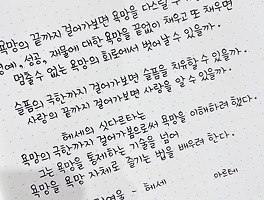 욕망의 끝까지 걸어가보면 욕망을 다스릴 수
명예, 성공, 재물에 대한 욕망을 끝없이 채우고 또 채우면
멈출수 없는 욕망의 회로에서 벗어날 수 있을까.
슬픔의 극한까지 걸어가보면 슬픔을 치유할 수 있을까.
사랑의 끝까지 걸어가보면 사랑을 알 수 있을까.
헤세의 싯다르타는
욕망의 극한까지 걸어가봄으로써 욕망을 이해하려 했다.
그는 욕망을 통제하는 기술을 넘어
욕망을 욕망 자체로 즐기는 법을 배우려 한다.
- 헤세
아르테